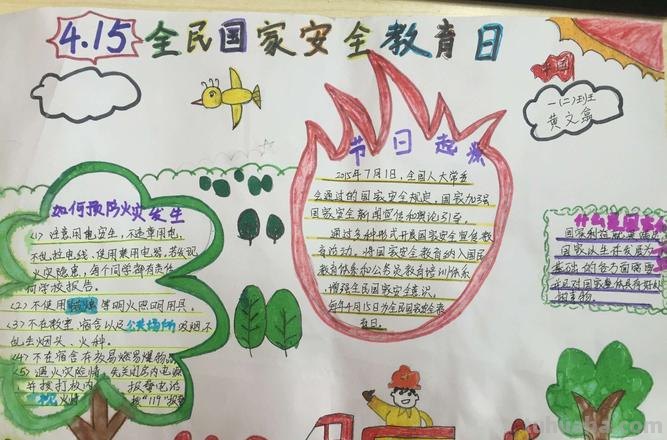 4.15 全民国家安全教育日
中国
一(二)班
黄文鑫
节日起源
2015年7月1日,全国人大常委
会通过的国家安全规定,国家加强
国家安全新闻宣传和舆论引导,
通过多种形式开展国家安全宣传教
育活动,将国家安全教育纳入国民
教育体系和公务员教育培训体系,
增强全民国家安全意识。
每年4月15日为全民国家安全教
育日。
如何预防火灾发生
<1>注意用电安全,不违章用电,
不乱拉电线、使用禁用电器,若发现
火灾隐患,每个同学都有责任
向学校报告。
<2>不使用蜡烛等明火照明用具,
<3>不在教室、宿舍以及公共场所吸烟不
乱丢烟头、火种。
<4>不在宿舍存放易燃易爆物
<5>遇火灾险情,先关闭房内电源
并拨打校内 报警电话
火情 拨"119"报警
什么是国家
国家利益
国家以生存发展为
基础的各方面